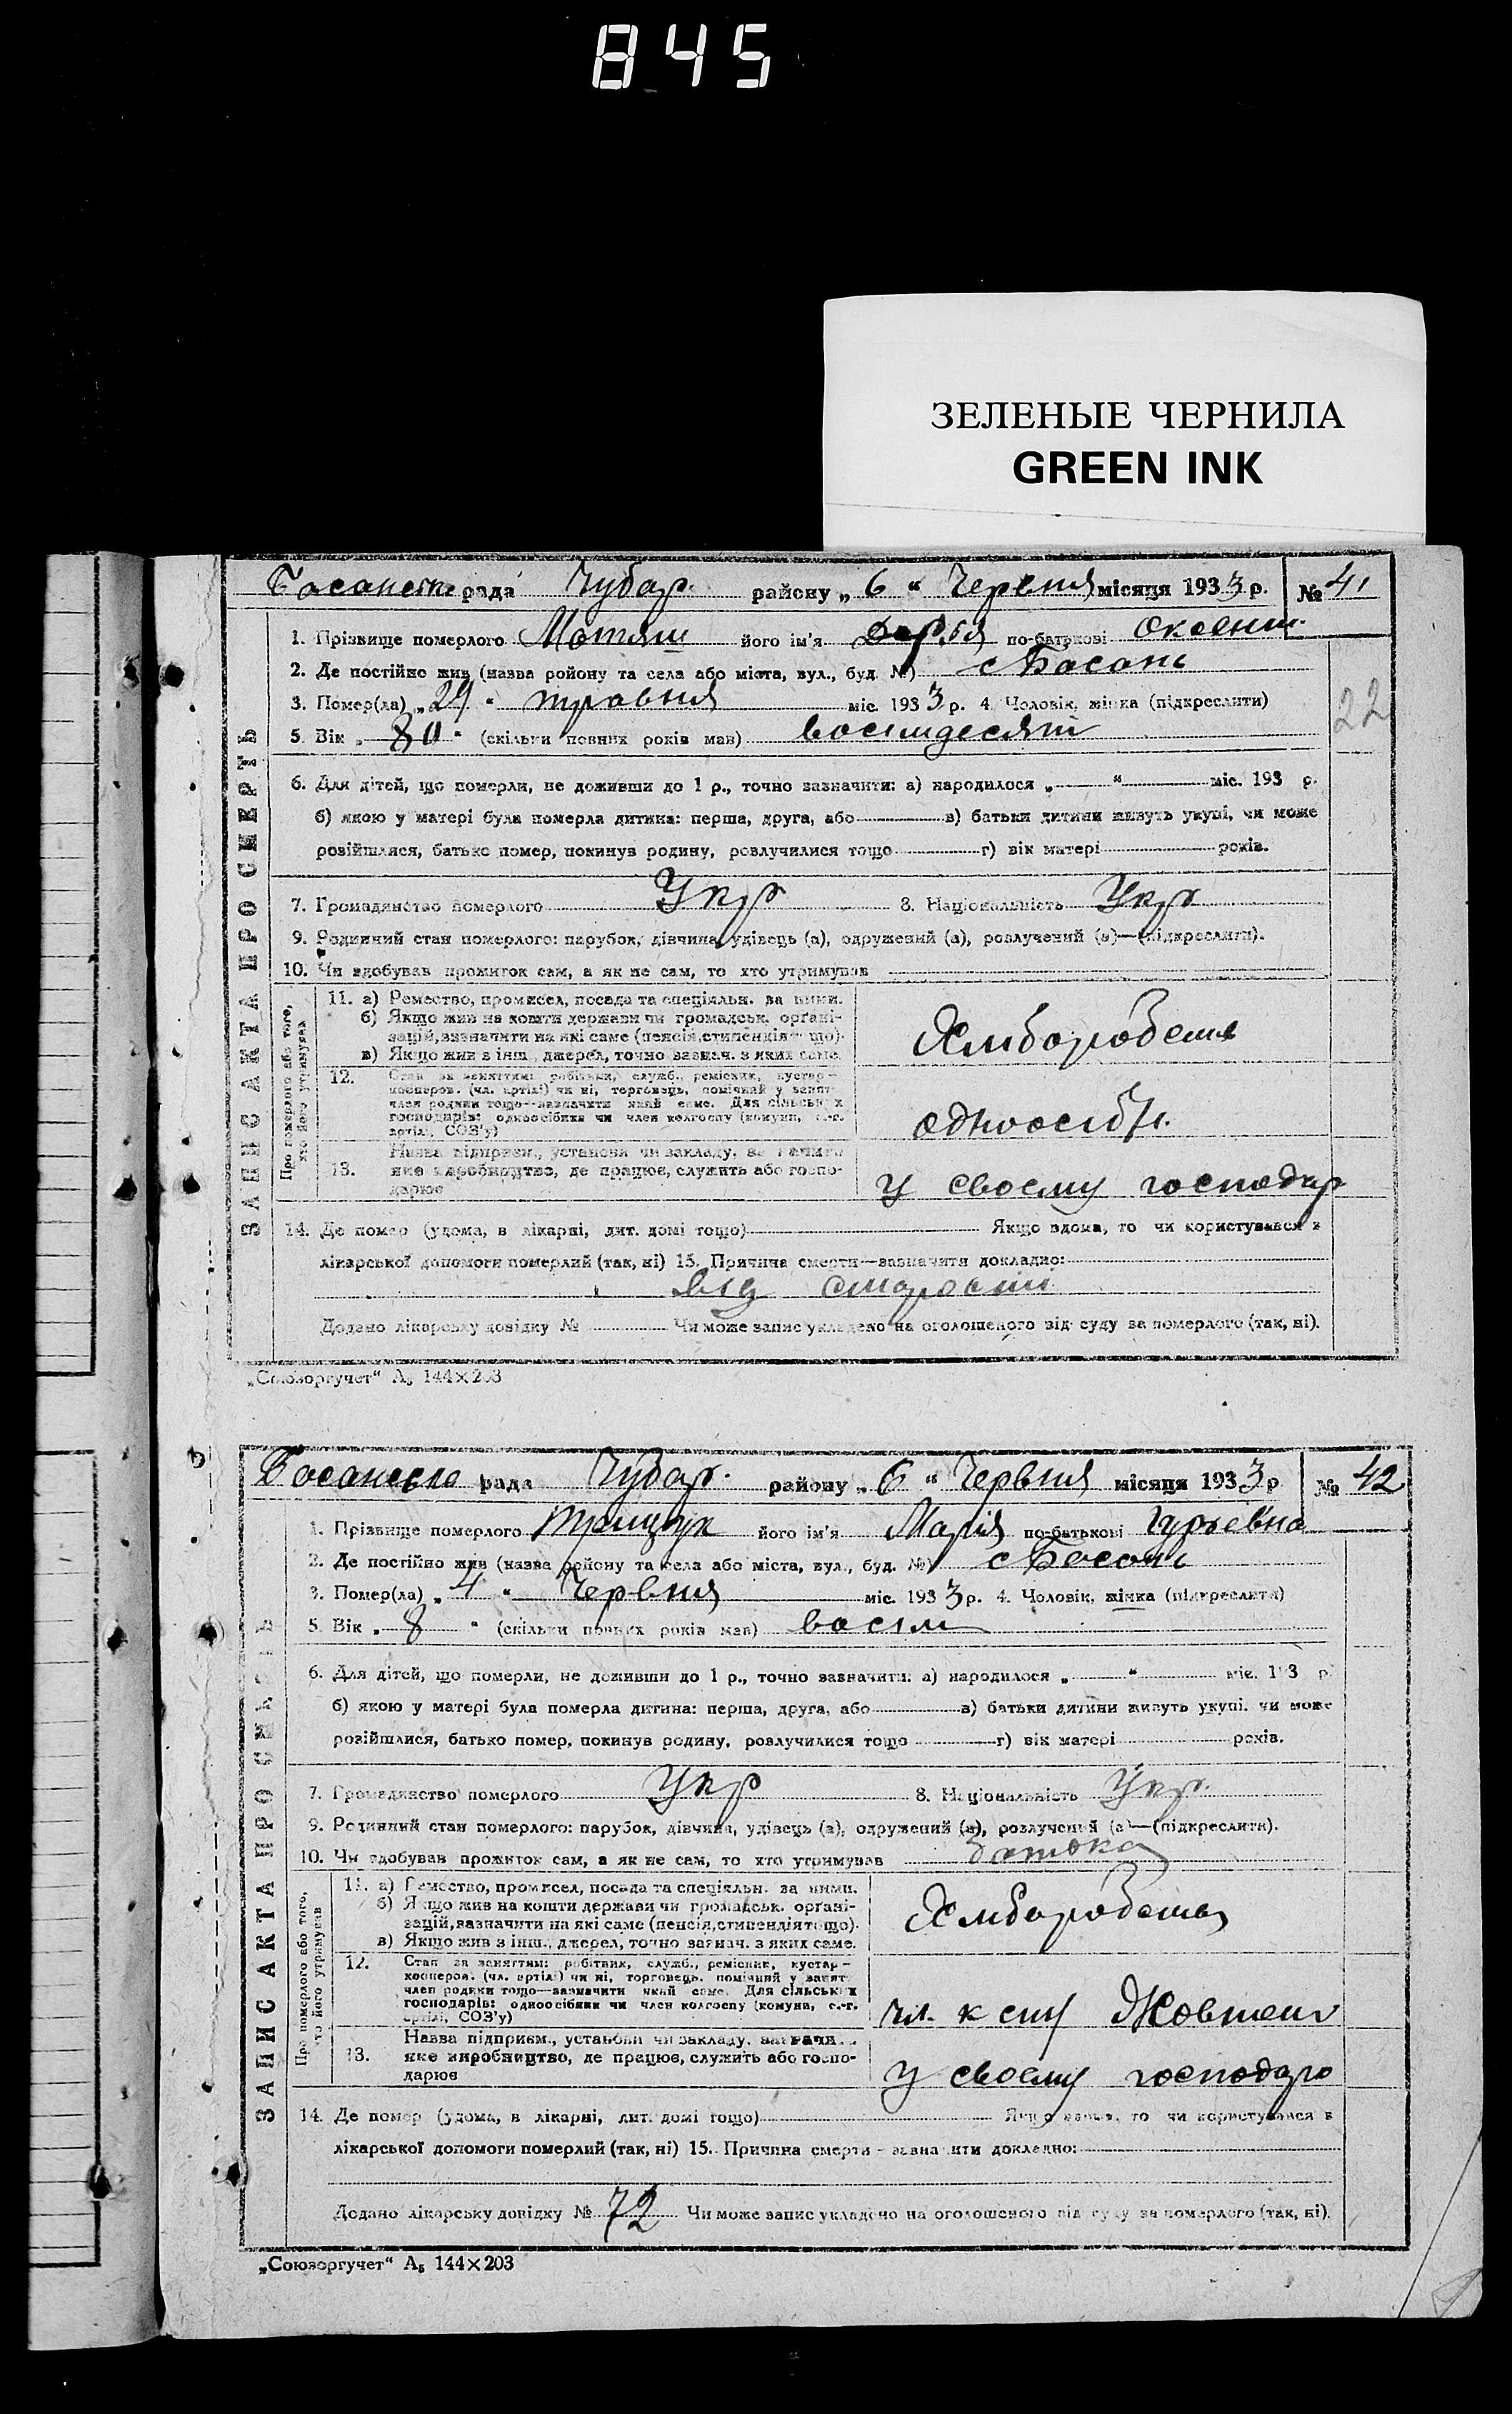 845
ЗЕЛЕНЫЕ ЧЕРНИЛА
GREEN INK
Басанська рада Чубар. району „ 6 “ Червня місяця 1933 р. № 41
1. Прізвище померлого Мотяш його ім'я Дар'я по-батькові
2. Де постійно жив (назва району та села або міста, вул., буд. №) с Басань
3. Помер(ла) „ 29 “ травня міс. 1933 р. 4. Чоловік, жінка (підкреслити)
22
5. Вік „ 80 “ (скільки повних років мав) восімдесят
6. Для дітей, що померли, не доживши до 1 р., точно зазначити: а) народилося „ “ міс. 193 р.
б) якою у матері була померла дитина: перша, друга, або в) батьки дитини живуть укупі, чи може
розійшлися, батько помер, покинув родину, розлучилися тощо г) вік матері років.
7. Громадянство померлого Укр 8. Національність Укр
9. Родинний стан померлого: парубок, дівчина, удівець (а), одружений (а), розлучений (а)—(підкреслити).
10. Чи здобував прожиток сам, а як не сам, то хто утримував
ЗАПИС АКТА ПРО СМЕРТЬ
Про померлого або того,
хто його утримував
11. а) Ремество, промисел, посада та спеціяльн. за ними.
б) Якщо жив на кошти держави чи громадськ. органі-
зацій, зазначити на які саме (пенсія, стипендія тощо).
в) Якщо жив з інш. джерел, точно зазнач. з яких саме.
Хліборобства
12. Стан за заняттям: робітник, служб., ремісник, кустар-
кооперов. (чл. артілі) чи ні, торговець, помічний у занят.
член родини тощо—зазначити який саме. Для сільських
господарів: одноосібник чи член колгоспу (комуни, с.-г.
артілі, СОЗ'у)
одноосібн.
13. Назва підприєм., установи чи закладу, зазначи
яке виробництво, де працює, служить або госпо-
дарює
У своєму господар
14. Де помер (удома, в лікарні, дит. домі тощо) Якщо вдома, то чи користувався з
лікарської допомоги померлий (так, ні) 15. Причина смерти—зазначити докладно:
від старости
Додано лікарську довідку № Чи може запис укладено на оголошеного від суду за померлого (так, ні).
„Союзоргучет“ А₅ 144×203
Басанська рада Чубар. району „ 6 “ Червня місяця 1933 р № 42
1. Прізвище померлого Грищук його ім'я Марія по-батькові Гурьевна
2. Де постійно жив (назва району та села або міста, вул., буд. №) с Басань
3. Помер(ла) „ 4 “ Червня міс. 1933 р. 4. Чоловік, жінка (підкреслити)
5. Вік „ 8 “ (скільки повних років мав) восім
6. Для дітей, що померли, не доживши до 1 р., точно зазначити: а) народилося „ “ міс. 193 р.
б) якою у матері була померла дитина: перша, друга, або в) батьки дитини живуть укупі, чи може
розійшлися, батько помер, покинув родину, розлучилися тощо г) вік матері років.
7. Громадянство померлого Укр 8. Національність Укр.
9. Родинний стан померлого: парубок, дівчина, удівець (а), одружений (а), розлучений (а)—(підкреслити).
10. Чи здобував прожиток сам, а як не сам, то хто утримував батька
ЗАПИС АКТА ПРО СМЕРТЬ
Про померлого або того,
хто його утримував
11. а) Ремество, промисел, посада та спеціяльн. за ними.
б) Якщо жив на кошти держави чи громадськ. органі-
зацій, зазначити на які саме (пенсія, стипендія тощо).
в) Якщо жив з інш., джерел, точно зазнач. з яких саме.
Хліборобства
12. Стан за заняттям: робітник, служб., ремісник, кустар-
кооперов. (чл. артілі) чи ні, торговець, помічний у занят.
член родини тощо—зазначити який саме. Для сільських
господарів: одноосібник чи член колгоспу (комуни, с.-г.
артілі, СОЗ'у)
чл. к спу Жовтень
13. Назва підприєм., установи чи закладу, зазначи
яке виробництво, де працює, служить або госпо-
дарює
У своєму господарю
14. Де помер (удома, в лікарні, дит. домі тощо) Якщо вдома, то чи користувався з
лікарської допомоги померлий (так, ні) 15. Причина смерти—зазначити докладно:
Додано лікарську довідку № 72 Чи може запис укладено на оголошеного від суду за померлого (так, ні).
„Союзоргучет“ А₅ 144×203